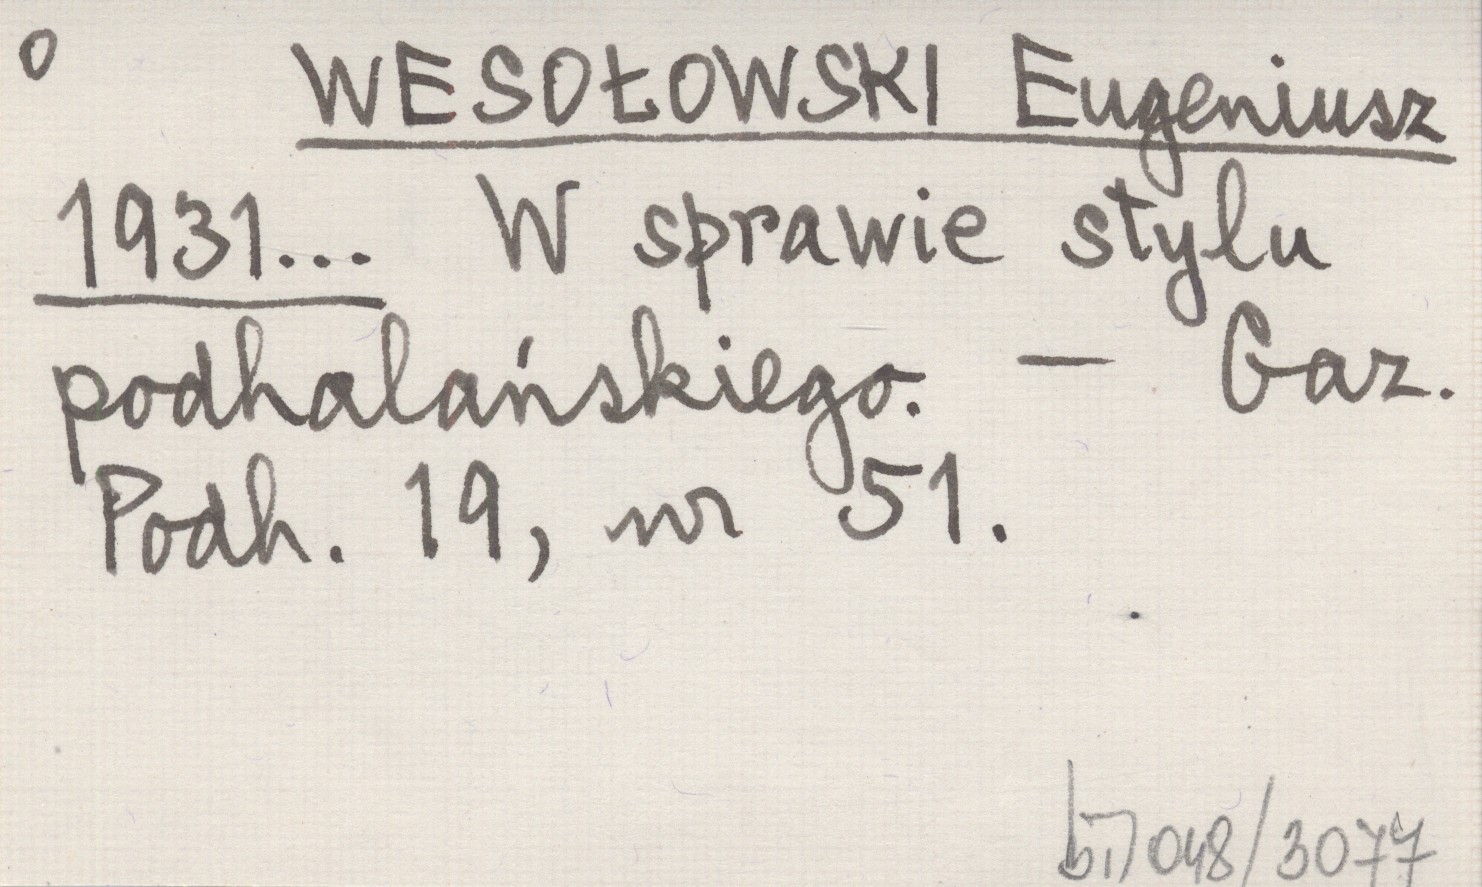 o WESOŁOWSKI Eugeniusz
1931... W sprawie stylu
podhalańskiego. — Gaz.
Podh. 19, nr 51.
048/3077